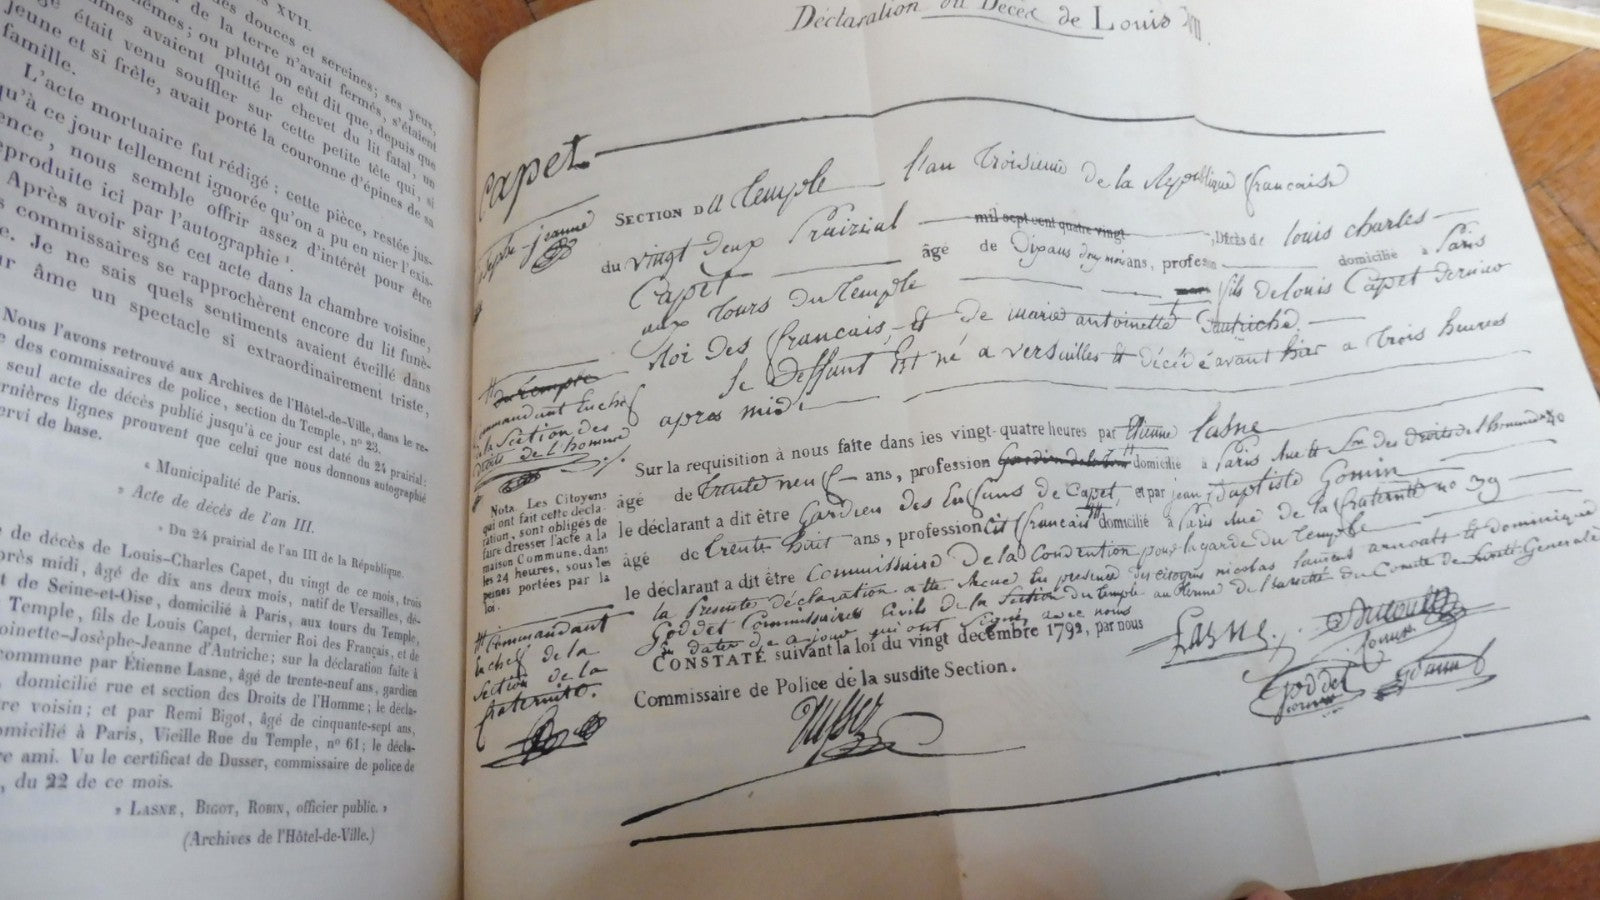 S XVII.
des douces et sereines; ses yeux,
mêmes; ou plutôt on eût dit que, depuis que
de la terre n'avait fermés, s'étaient
mmes avaient quitté le chevet du lit fatal, un
ge était venu souffler sur cette petite tête qui, si
jeune et si frêle, avait porté la couronne d'épines de sa
famille.
L'acte mortuaire fut rédigé : cette pièce, restée jus-
qu'à ce jour tellement ignorée qu'on a pu en nier l'exis-
ence, nous semble offrir assez d'intérêt pour être
eproduite ici par l'autographie ¹.
Après avoir signé cet acte dans la chambre voisine,
s commissaires se rapprochèrent encore du lit funè-
e. Je ne sais quels sentiments avaient éveillé dans
ur âme un spectacle si extraordinairement triste,
Nous l'avons retrouvé aux Archives de l'Hôtel-de-Ville, dans le re-
e des commissaires de police, section du Temple, n° 23.
seul acte de décès publié jusqu'à ce jour est daté du 24 prairial :
ernières lignes prouvent que celui que nous donnons autographié
ervi de base.
« Municipalité de Paris.
» Acte de décès de l'an III.
» Du 24 prairial de l'an III de la République.
e de décès de Louis-Charles Capet, du vingt de ce mois, trois
près midi, âgé de dix ans deux mois, natif de Versailles, dé-
t de Seine-et-Oise, domicilié à Paris, aux tours du Temple,
Temple, fils de Louis Capet, dernier Roi des Français, et de
oinette-Josèphe-Jeanne d'Autriche; sur la déclaration faite à
commune par Étienne Lasne, âgé de trente-neuf ans, gardien
, domicilié rue et section des Droits de l'Homme; le décla-
re voisin; et par Remi Bigot, âgé de cinquante-sept ans,
omicilié à Paris, Vieille Rue du Temple, n° 61; le décla-
re ami. Vu le certificat de Dusser, commissaire de police de
, du 22 de ce mois.
» LASNE, BIGOT, ROBIN, officier public. »
(Archives de l'Hôtel-de-Ville.)
Déclaration du Décès de Louis XVII.
Capet
josephe jeanne
SECTION DU Temple l'an Troisieme de la République francaise
du vingt deux Prairial mil sept cent quatre vingt , Décès de louis charles
Capet âgé de dix ans deux mois ans, profession domicilié à Paris
aux tours du temple fils de louis Capet dernier
Roi des francais, et de marie antoinette d'autriche.
le deffunt Est né a versailles et décédé avant hier a trois heures
apres midi
# du temple
commandant En chef
de la Section des
droits de l'homme
Sur la requisition à nous faite dans les vingt-quatre heures par Etienne Lasne
âgé de trente neuf ans, profession domicilié à Paris Rue et Son des Droits de l'homme no 48
le déclarant a dit être Gardien des Enfans de Capet, et par jean Baptiste Gomin
âgé de trente huit ans, profession Cit francais domicilié à Paris Rue de la fraternité no 39
le déclarant a dit être Commissaire de la Convention pour la garde du temple
la Presente déclaration a été Recue En presence des citoyens nicolas laurent arnoult et dominique
Goddet Commissaires Civils de la Section du temple au terme de l'arreté du Comité de Sureté Generale
En datte de ce jour qui ont Signé avec nous
CONSTATÉ suivant la loi du vingt décembre 1792, par nous
Commissaire de Police de la susdite Section.
Nota. Les Citoyens
qui ont fait cette décla-
ration, sont obligés de
faire dresser l'acte à la
maison Commune, dans
les 24 heures, sous les
peines portées par la
loi.
# Commandant
En chef de la
Section de la
fraternité.
Lasne
Arnoult
Gomin
Goddet
Dusser